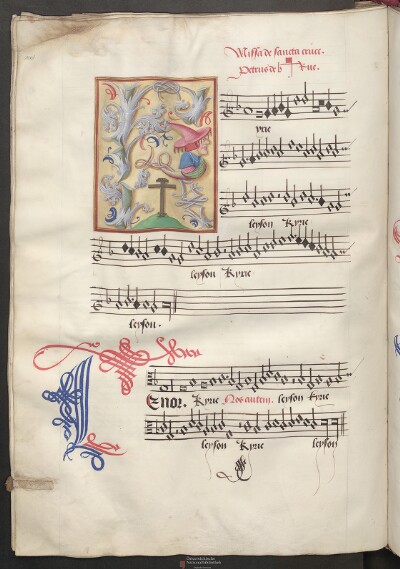 Missa de sancta cruce.
Petrus de la Rue.
yrie
leyson Kyrie
leyson Kyrie
leyson.
Enor. Kyrie Nos autem. leyson Kyrie
leyson Kyrie leyson